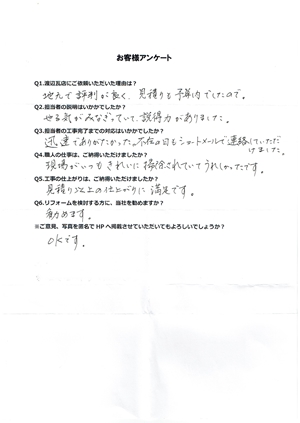 お客様アンケート
Q1.渡辺瓦店にご依頼いただいた理由は？
地元で評判が良く、見積りも予算内でしたので。
Q2.担当者の説明はいかがでしたか？
やる気がみなぎっていて、説得力がありました。
Q3.担当者の工事完了までの対応はいかがでしたか？
迅速でありがたかった。不在の日もショートメールで連絡していただ
けました。
Q4.職人の仕事は、ご納得いただけましたか？
現場がいつもきれいに掃除されていてうれしかったです。
Q5.工事の仕上がりは、ご納得いただけましたか？
見積り以上の仕上がりに満足です。
Q6.リフォームを検討する方に、当社を勧めますか？
勧めます。
※ご意見、写真を匿名でHPへ掲載させていただいてもよろしいでしょうか？
OKです。